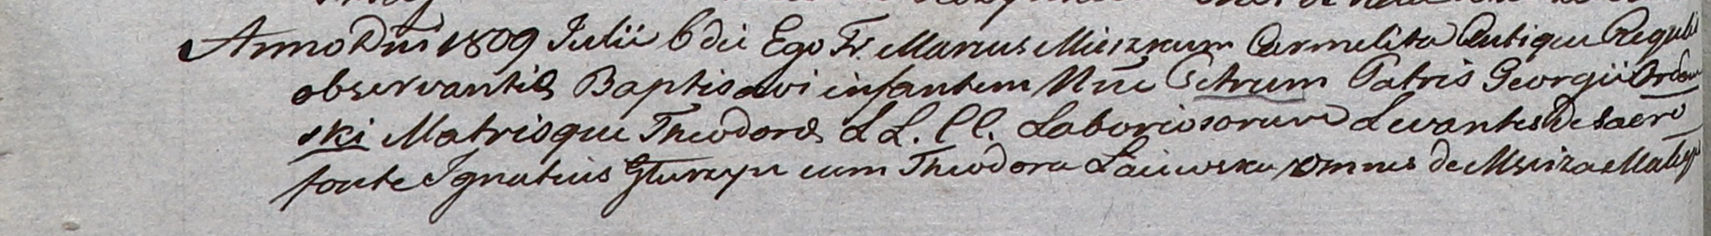 Anno Dni 1809 Julii 6 die Ego Fr. Marius Carmelita Antiquae Regularis
observantiae Baptisavi infantem Nne Petrum Patris Georgii Ordow
ski Matrisque Theodorae L L. CC. Laboriosorum Levantes de sacro
fonte Ignatius cum Theodora omnes de